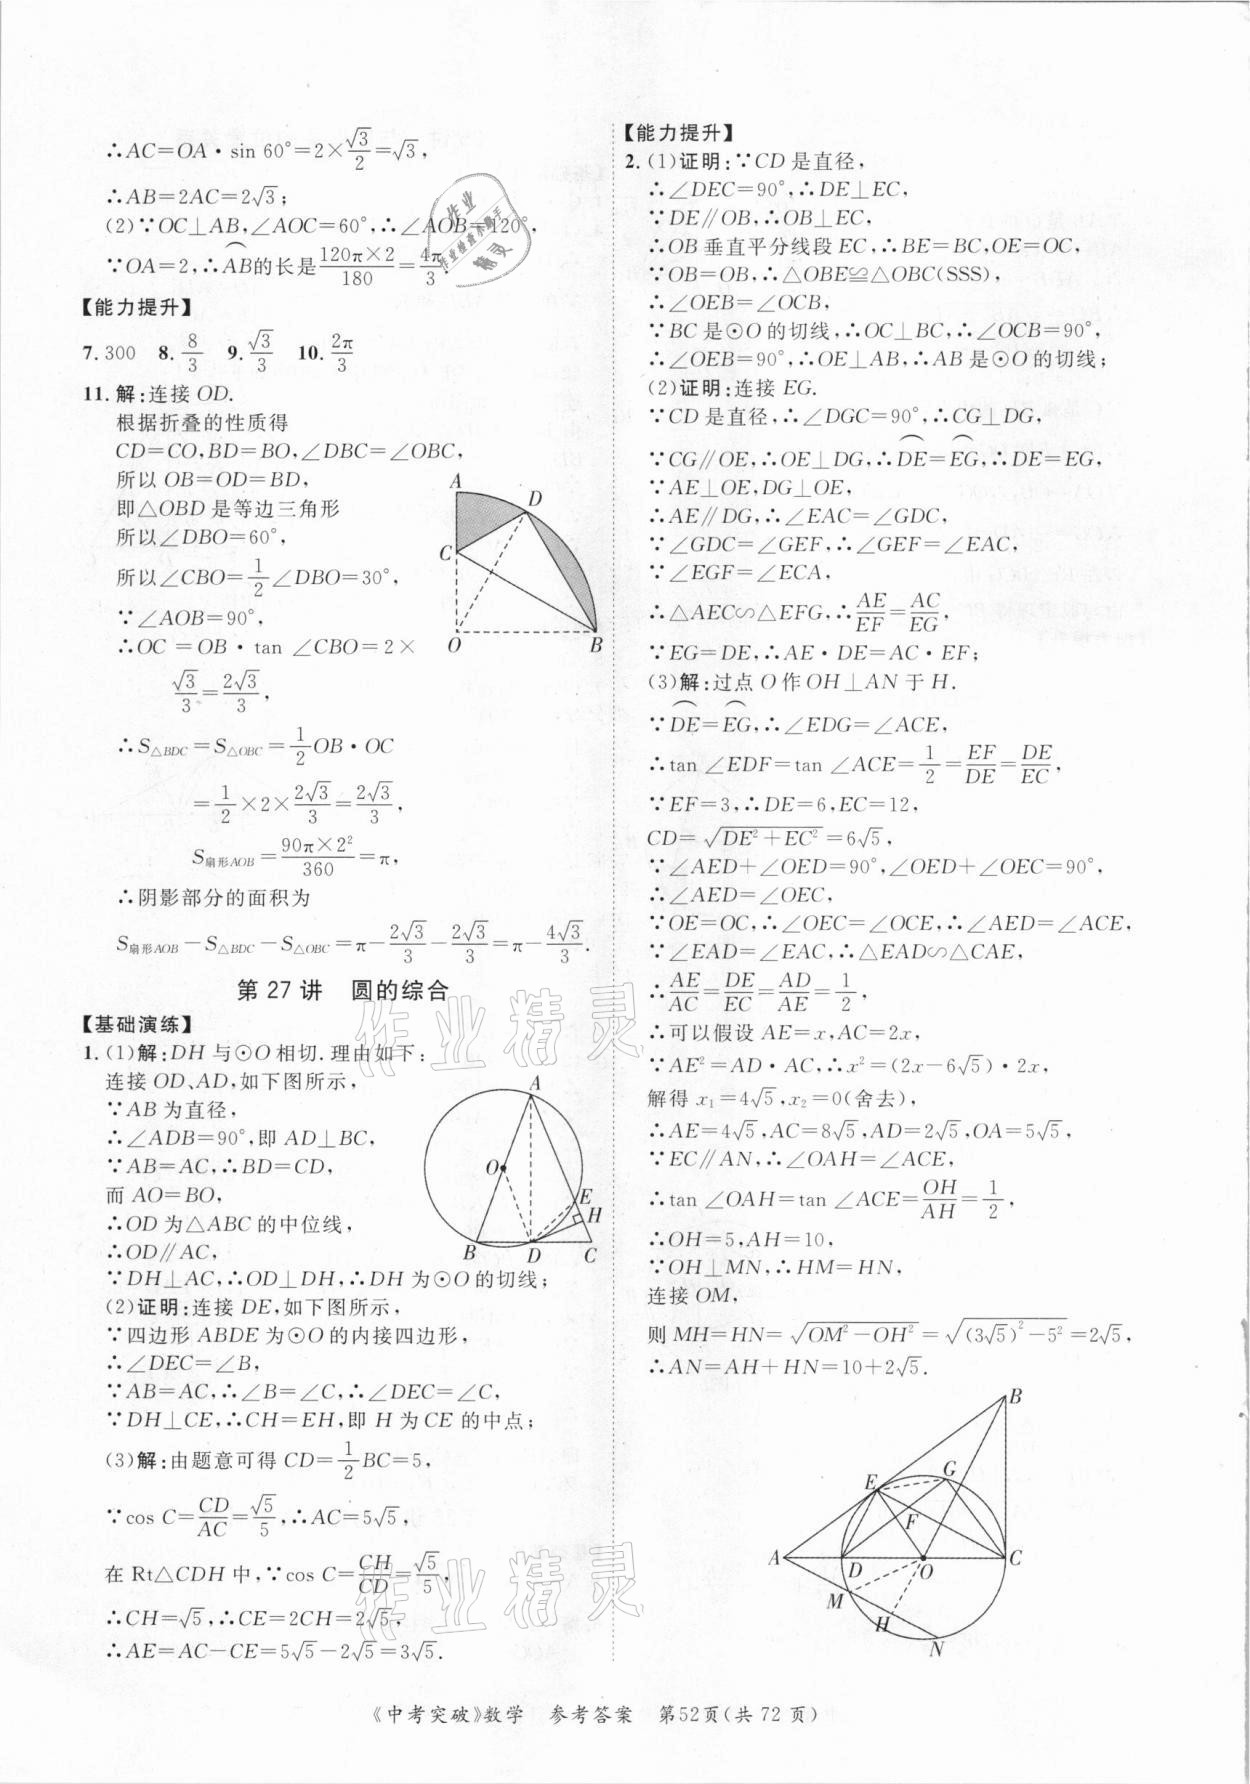 ∴AC=OA·sin 60°=2×√3/2=√3,
∴AB=2AC=2√3;
(2)∵OC⊥AB,∠AOC=60°,∴∠AOB=120°
∵OA=2,∴AB⌒的长是120π×2/180=4π/3.
【能力提升】
7.300 8.8/3 9.√3/3 10.2π/3
11.解:连接OD.
根据折叠的性质得
CD=CO,BD=BO,∠DBC=∠OBC,
所以OB=OD=BD,
即△OBD是等边三角形
所以∠DBO=60°,
所以∠CBO=1/2∠DBO=30°,
∵∠AOB=90°,
∴OC=OB·tan∠CBO=2×
√3/3=2√3/3,
∴S△BDC=S△OBC=1/2OB·OC
=1/2×2×2√3/3=2√3/3,
S扇形AOB=90π×2²/360=π,
∴阴影部分的面积为
S扇形AOB-S△BDC-S△OBC=π-2√3/3-2√3/3=π-4√3/3.
A
D
C
O
B
第27讲 圆的综合
【基础演练】
1.(1)解:DH与⊙O相切.理由如下:
连接OD、AD,如下图所示,
∵AB为直径,
∴∠ADB=90°,即AD⊥BC,
∵AB=AC,∴BD=CD,
而AO=BO,
∴OD为△ABC的中位线,
∴OD∥AC,
∵DH⊥AC,∴OD⊥DH,∴DH为⊙O的切线;
(2)证明:连接DE,如下图所示,
∵四边形ABDE为⊙O的内接四边形,
∴∠DEC=∠B,
∵AB=AC,∴∠B=∠C,∴∠DEC=∠C,
∵DH⊥CE,∴CH=EH,即H为CE的中点;
(3)解:由题意可得CD=1/2BC=5,
∵cos C=CD/AC=√5/5,∴AC=5√5,
在Rt△CDH中,∵cos C=CH/CD=√5/5,
∴CH=√5,∴CE=2CH=2√5,
∴AE=AC-CE=5√5-2√5=3√5.
A
O
E
H
B
D
C
【能力提升】
2.(1)证明:∵CD是直径,
∴∠DEC=90°,∴DE⊥EC,
∵DE∥OB,∴OB⊥EC,
∴OB垂直平分线段EC,∴BE=BC,OE=OC,
∵OB=OB,∴△OBE≌△OBC(SSS),
∴∠OEB=∠OCB,
∵BC是⊙O的切线,∴OC⊥BC,∴∠OCB=90°,
∴∠OEB=90°,∴OE⊥AB,∴AB是⊙O的切线;
(2)证明:连接EG.
∵CD是直径,∴∠DGC=90°,∴CG⊥DG,
∵CG∥OE,∴OE⊥DG,∴DE⌒=EG⌒,∴DE=EG,
∵AE⊥OE,DG⊥OE,
∴AE∥DG,∴∠EAC=∠GDC,
∵∠GDC=∠GEF,∴∠GEF=∠EAC,
∵∠EGF=∠ECA,
∴△AEC∽△EFG,∴AE/EF=AC/EG,
∵EG=DE,∴AE·DE=AC·EF;
(3)解:过点O作OH⊥AN于H.
∵DE⌒=EG⌒,∴∠EDG=∠ACE,
∴tan∠EDF=tan∠ACE=1/2=EF/DE=DE/EC,
∵EF=3,∴DE=6,EC=12,
CD=√(DE²+EC²)=6√5,
∵∠AED+∠OED=90°,∠OED+∠OEC=90°,
∴∠AED=∠OEC,
∵OE=OC,∴∠OEC=∠OCE,∴∠AED=∠ACE,
∵∠EAD=∠EAC,∴△EAD∽△CAE,
∴AE/AC=DE/EC=AD/AE=1/2,
∴可以假设AE=x,AC=2x,
∵AE²=AD·AC,∴x²=(2x-6√5)·2x,
解得x₁=4√5,x₂=0(舍去),
∴AE=4√5,AC=8√5,AD=2√5,OA=5√5,
∵EC∥AN,∴∠OAH=∠ACE,
∴tan∠OAH=tan∠ACE=OH/AH=1/2,
∴OH=5,AH=10,
∵OH⊥MN,∴HM=HN,
连接OM,
则MH=HN=√(OM²-OH²)=√((3√5)²-5²)=2√5,
∴AN=AH+HN=10+2√5.
B
E
G
F
A
D
O
C
M
H
N
作业精灵
作业精灵
作业
作业检查小助手
精灵
《中考突破》数学 参考答案 第52页(共72页)